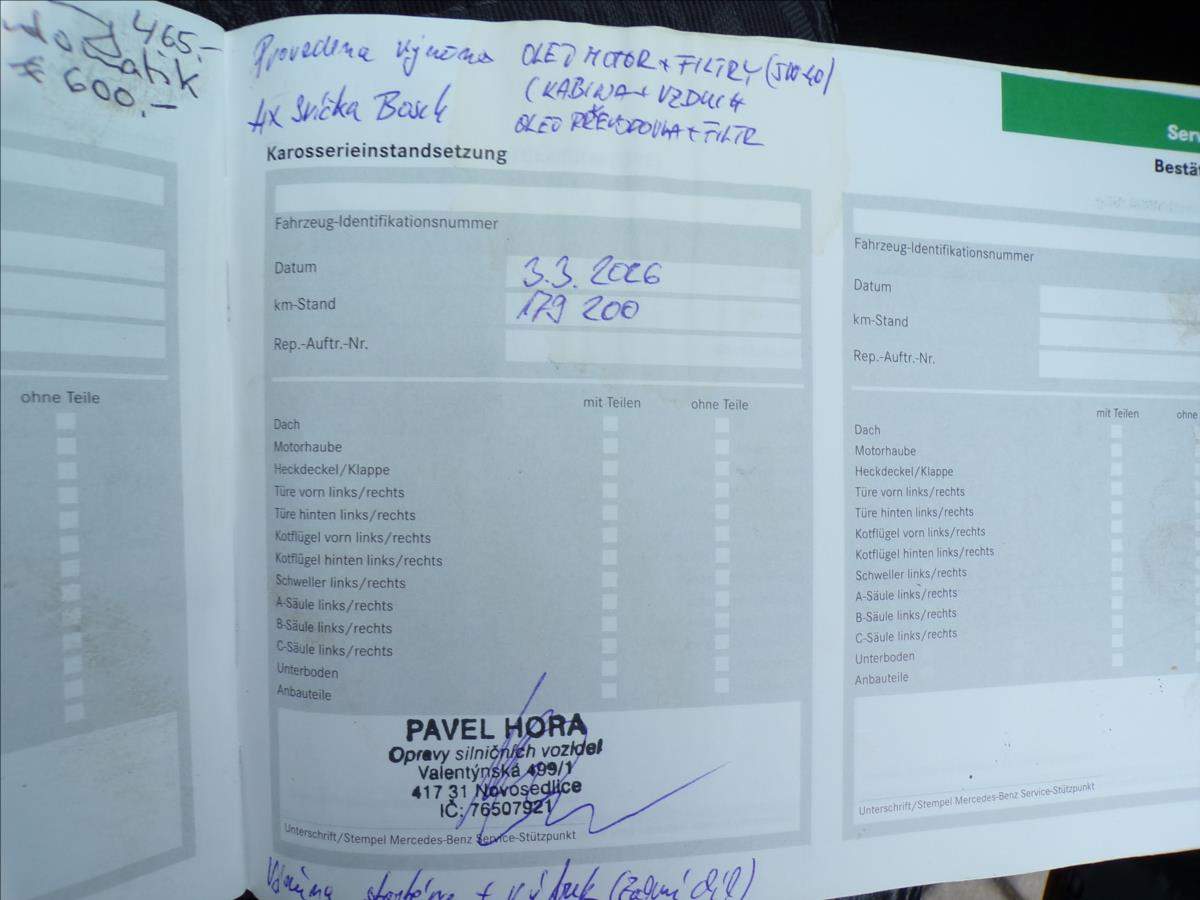 465.-
600.-
Provedena výměna OLEJ MOTOR + FILTRY (5W40)
(KABINA + VZDUCH
4x Svíčka Bosch OLEJ PŘEVODOVKA + FILTR
Karosserieinstandsetzung
Fahrzeug-Identifikationsnummer
Datum 3.3. 2026
km-Stand 179 200
Rep.-Auftr.-Nr.
mit Teilen ohne Teile
Dach
Motorhaube
Heckdeckel/Klappe
Türe vorn links/rechts
Türe hinten links/rechts
Kotflügel vorn links/rechts
Kotflügel hinten links/rechts
Schweller links/rechts
A-Säule links/rechts
B-Säule links/rechts
C-Säule links/rechts
Unterboden
Anbauteile
PAVEL HORA
Opravy silničních vozidel
Valentýnská 499/1
417 31 Novosedlice
IČ: 76507921
Unterschrift/Stempel Mercedes-Benz Service-Stützpunkt
ohne Teile
Ser
Bestä
Fahrzeug-Identifikationsnummer
Datum
km-Stand
Rep.-Auftr.-Nr.
mit Teilen ohne
Dach
Motorhaube
Heckdeckel/Klappe
Türe vorn links/rechts
Türe hinten links/rechts
Kotflügel vorn links/rechts
Kotflügel hinten links/rechts
Schweller links/rechts
A-Säule links/rechts
B-Säule links/rechts
C-Säule links/rechts
Unterboden
Anbauteile
Unterschrift/Stempel Mercedes-Benz Service-Stützpunkt